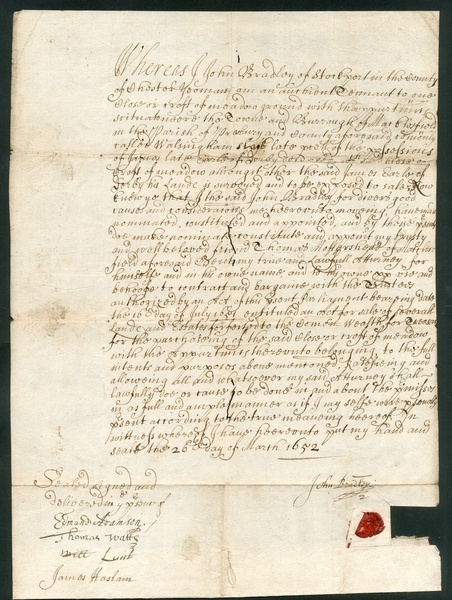 Whereas I John Bradley of Stockport in the County
of Chester Yeoman am an auntient Tennant to one
Close or croft of meadow ground with thappurtennces
scituate neere the Towne and Burrough of Macclesfield
in the Parish of Presbury and County aforesaid comonly
called Walsingham late pte of the possessions
of James late Earle of Derby which close or
Croft of meadow amongst other the said James Earle of
Derby his Lands is surveyed and to be exposed to sale Now
knowe yee that I the said John Bradley for divers good
causes and considerations me hereunto moveing have
nominated constituted and appointed, and by these psents
doe make constitute and appoint my trusty
and welbeloved freind Thomas of Maccles
field aforesaid Gent my true and Lawfull Atturney for
himselfe and in his owne name and to his owne use and
behoofe to contract and bargaine with the Trustees
authorized by an Act of this psent Parliament beareing date
the 16th day of July 1651 entituled an Act for sale of severall
Lands and Estates forfeited to the Comon Wealth for Treason
for the purchaseing of the said Close or croft of meadow
with the Appurtenncs thereunto belonging to the full
intents and purposes above mentioned Ratefieing and
alloweing all and whatsoever my said Atturney shall
lawfully doe or cause to be done in and about the pmisses
in as full and ample manner as if I my selfe were psonally
psent according to the true meaneing hereof In
witness whereof I have hereunto put my hand and
seale the 26th day of March 1652
Sealed signed and
delivered in ye psence of
John Bradley
Edmund Adamson
Thomas Watts
Will Lunt
James Haslam